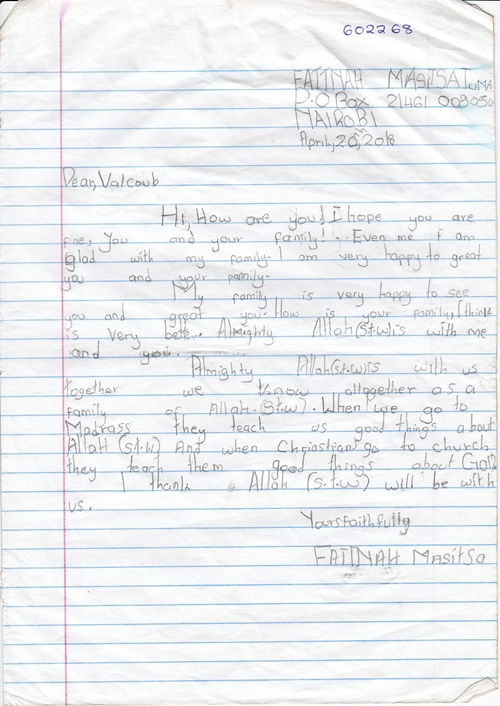 602268
FATINAH MASITSA JUMA
P.O Box 21461 00505
NAIROBI
April, 20th, 2018
Dear, Valcoub
Hi, How are you! I hope you are
fine, you and your family! Even me i am
glad with my family. I am very happy to great
you and your family.
My family is very happy to see
you and great you. How is your family, I think
is very bete.. Almighty Allah (s.t.w) is with me
and you.
Almighty Allah (s.t.w) is with us
together we know alltogether as a
family of Allah (S.t.w). When we go to
Madrass they teach us good things about
Allah (s.t.w) And when Christians go to church
they teach them good things about God.
I thank Allah (s.t.w) will be with
us.
Yours faithfully
FATINAH MASITSA